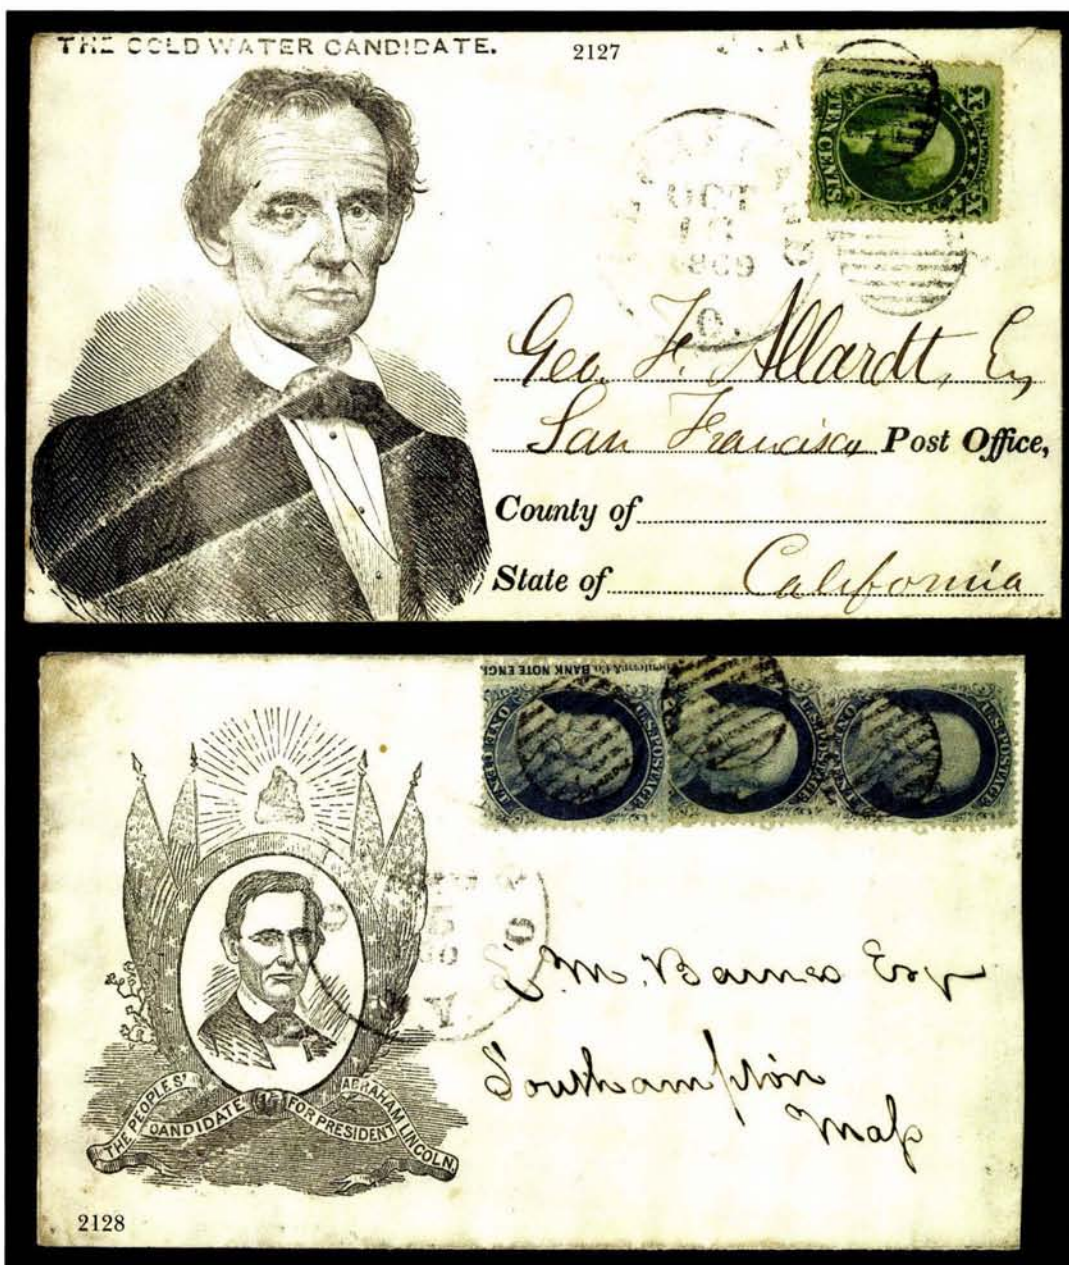 THE COLD WATER CANDIDATE.
2127
TEN CENTS
OCT
1869
O.
Geo. F. Allardt, Esq
San Francisco Post Office,
County of
State of California
BANK NOTE ENGR.
U.S. POSTAGE
U.S. POSTAGE
U.S. POSTAGE
O.
S. M. Barnes Esqr
Southampton
Mass
THE PEOPLES' CANDIDATE FOR PRESIDENT ABRAHAM LINCOLN.
2128